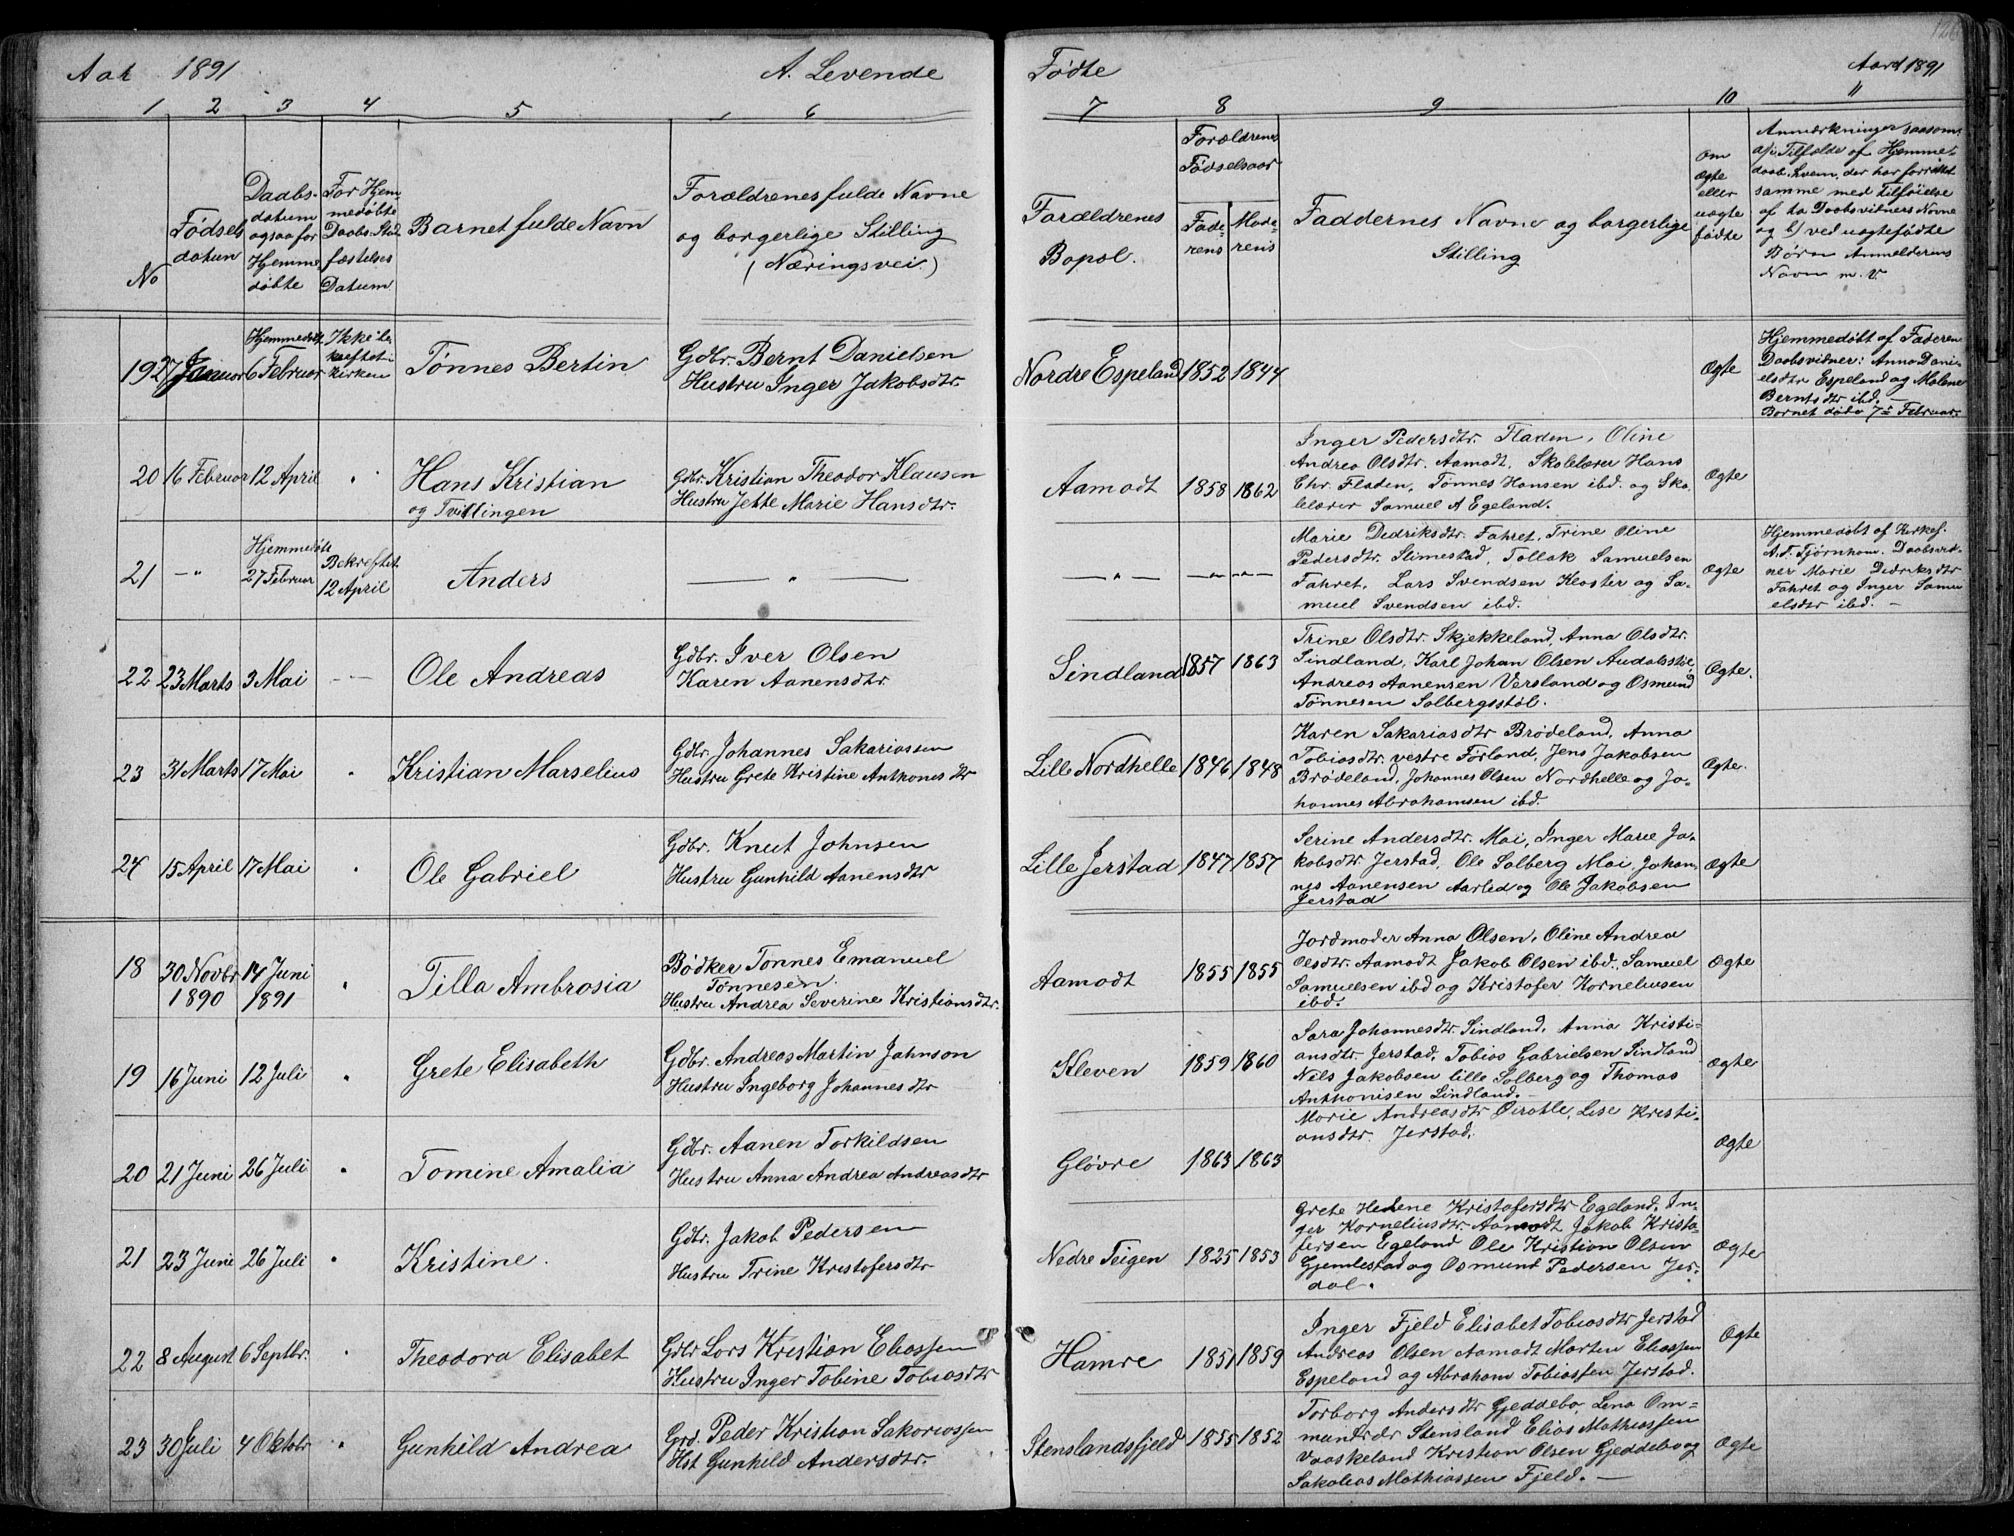 Aar 1891
A. Levende
Fødte
Aard 1891
126
1 2 3 4 5 6
7 8 9 10 11
No
Fødsels
datum
Daabs-
datum
ogsaa for
Hjemme
døbte
For Hjem-
medøbte
Daabs. Stad
fæstelses
Datum
Barnet fulde Navn
Forældrenes fulde Navne
og borgerlige Stilling
(Næringsvei.)
Forældrenes
Bopæl.
Forældrenes
Fødselsaar
Fade-
rens
Mode-
rens
Faddernes Navne og borgerlige
Stilling
om
Ægte
eller
uægte
fødte
Anmærkninger saasom
a/i Tilfælde af Hjemme-
daab, hvem, der har forrettet
samme med Tilføielse
af to Daabsvidners Navne
og b) ved uægtefødte
Børn Anmelderens
Navn m. v.
19 27 Januar
Hjemmedøbt
6 Februar
Ikke be-
kræftet i
kirken
Tønnes Bertin
Gdbr. Bernt Danielsen
Hustru Inger Jakobsdtr.
Nordre Espeland 1852 1844
Ægte
Hjemmedøbt af Faderen
Daabsvidner: Anna Dani-
elsdtr Espeland og Malene
Berntsdtr ibd. —
Barnet døde 7de Februar.
20 16 Februar 12 April "
Hans Kristian
og Tvillingen
Gdbr. Kristian Theodor Klausen
Hustru Jette Marie Hansdtr.
Aamodt 1858 1862
Inger Pedersdtr. Fladen, Oline
Andrea Olsdtr. Aamodt, Skolelærer Hans
Chr. Fladen, Tønnes Hansen ibd. og Sko-
lelærer Samuel A Egeland.
Ægte
21 — "
Hjemmedøbt
27 Februar
Bekræftet
12 April
Anders
— " —
— " — — " — — " —
Marie Dedriksdtr. Fahret, Trine Oline
Pedersdtr. Slimestad, Tollak Samuelsen
Fahret, Lars Svendsen Kloster og Sa-
muel Svendsen ibd.
Ægte
Hjemmedøbt af Kirkes.
A. T. Tjørnhom. Daabsvid-
ner Marie Didriksdtr
Fahret og Inger Samu
elsdtr ibd. —
22 23 Marts 3 Mai — —
Ole Andreas
Gdbr. Iver Olsen
Karen Aanensdtr
Sindland 1857 1863
Trine Olsdtr. Skjekkeland, Anna Olsdtr.
Sindland, Karl Johan Olsen Audalsstøl
Andreas Aanensen Versland og Osmund
Tønnesen Solbergsstøl.
Ægte.
23 31 Marts 17 Mai "
Kristian Marselius
Gdbr. Johannes Sakariassen
Hustru Grete Kristine Anthonisdtr
Lille Nordhelle 1846 1848
Karen Sakariasdtr Brødeland, Anna
Tobiasdtr. vestre Førland, Jens Jakobsen
Brødeland, Johannes Olsen Nordhelle og Jo-
hannes Abrahamsen ibd.
Ægte.
24 15 April 17 Mai "
Ole Gabriel
Gdbr. Knut Johnsen
Hustru Gunhild Aanensdtr
Lille Jerstad 1847 1857
Serine Andersdtr. Moi, Inger Marie Ja-
kobsdtr. Jerstad, Ole Solberg Moi, Johan-
nes Aanensen Aarled og Ole Jakobsen
Jerstad
Ægte
18 30 Novbr 14 Juni "
1890 1891
Tilla Ambrosia
Bødker Tønnes Emanuel
Tønnesen.
Hustru Andrea Severine Kristiansdtr.
Aamodt 1855 1855
Jordmoder Anna Olsen, Oline Andrea
Olsdtr. Aamodt Jakob Olsen ibd. Samuel
Samuelsen ibd og Kristofer Korneliusen
ibd.
Ægte
19 16 Juni 12 Juli "
Grete Elisabeth
Gdbr. Andreas Martin Johnson
Hustru Ingeborg Johannesdtr
Kleven 1859 1860
Sara Johannesdtr. Sindland, Anna Kristi-
ansdtr. Jerstad, Tobias Gabrielsen Sindland
Nils Jakobsen lille Solberg og Thomas
Anthonisen Sindland. —
Ægte
20 21 Juni 26 Juli "
Tomine Amalia
Gdbr. Aanen Torkildsen
Hustru Anna Andrea Andreasdtr
Gløvre 1863 1863
Marie Andreasdtr Lise Kristi-
ansdtr. Jerstad.
Ægte
21 23 Juni 26 Juli "
Kristine.
Gdbr. Jakob Pedersen
Hustru Trine Kristofersdtr
Nedre Teigen 1825 1853
Grete Helene Kristofersdtr Egeland, In-
ger Korneliusdtr. Aamodt, Jakob Kristo-
fersen Egeland Ole Kristian Olsen
Gjemlestad og Osmund Pedersen Jer-
dal.
Ægte
22 8 August 6 Septbr. "
Theodora Elisabet
Gdbr Lars Kristian Eliassen
Hustru Inger Tobine Tobiasdtr
Hamre 1851 1859
Inger Fjeld Elisabet Tobiasdtr Jerstad
Andreas Olsen Aamodt Morten Eliassen
Espeland og Abraham Tobiassen Jerstad.
Ægte
23 30 Juli 4 Oktbr "
Gunhild Andrea
Grd. Peder Kristian Sakariassen
Hst Gunhild Andersdtr.
Stenslandsfjeld 1855 1852
Torborg Andersdtr Gjeddebo, Lena Om-
mundsdr Stensland Elias Mathiassen
Vaaskeland Kristian Olsen Gjeddebo og
Sakarias Mathiassen Fjeld. —
Ægte